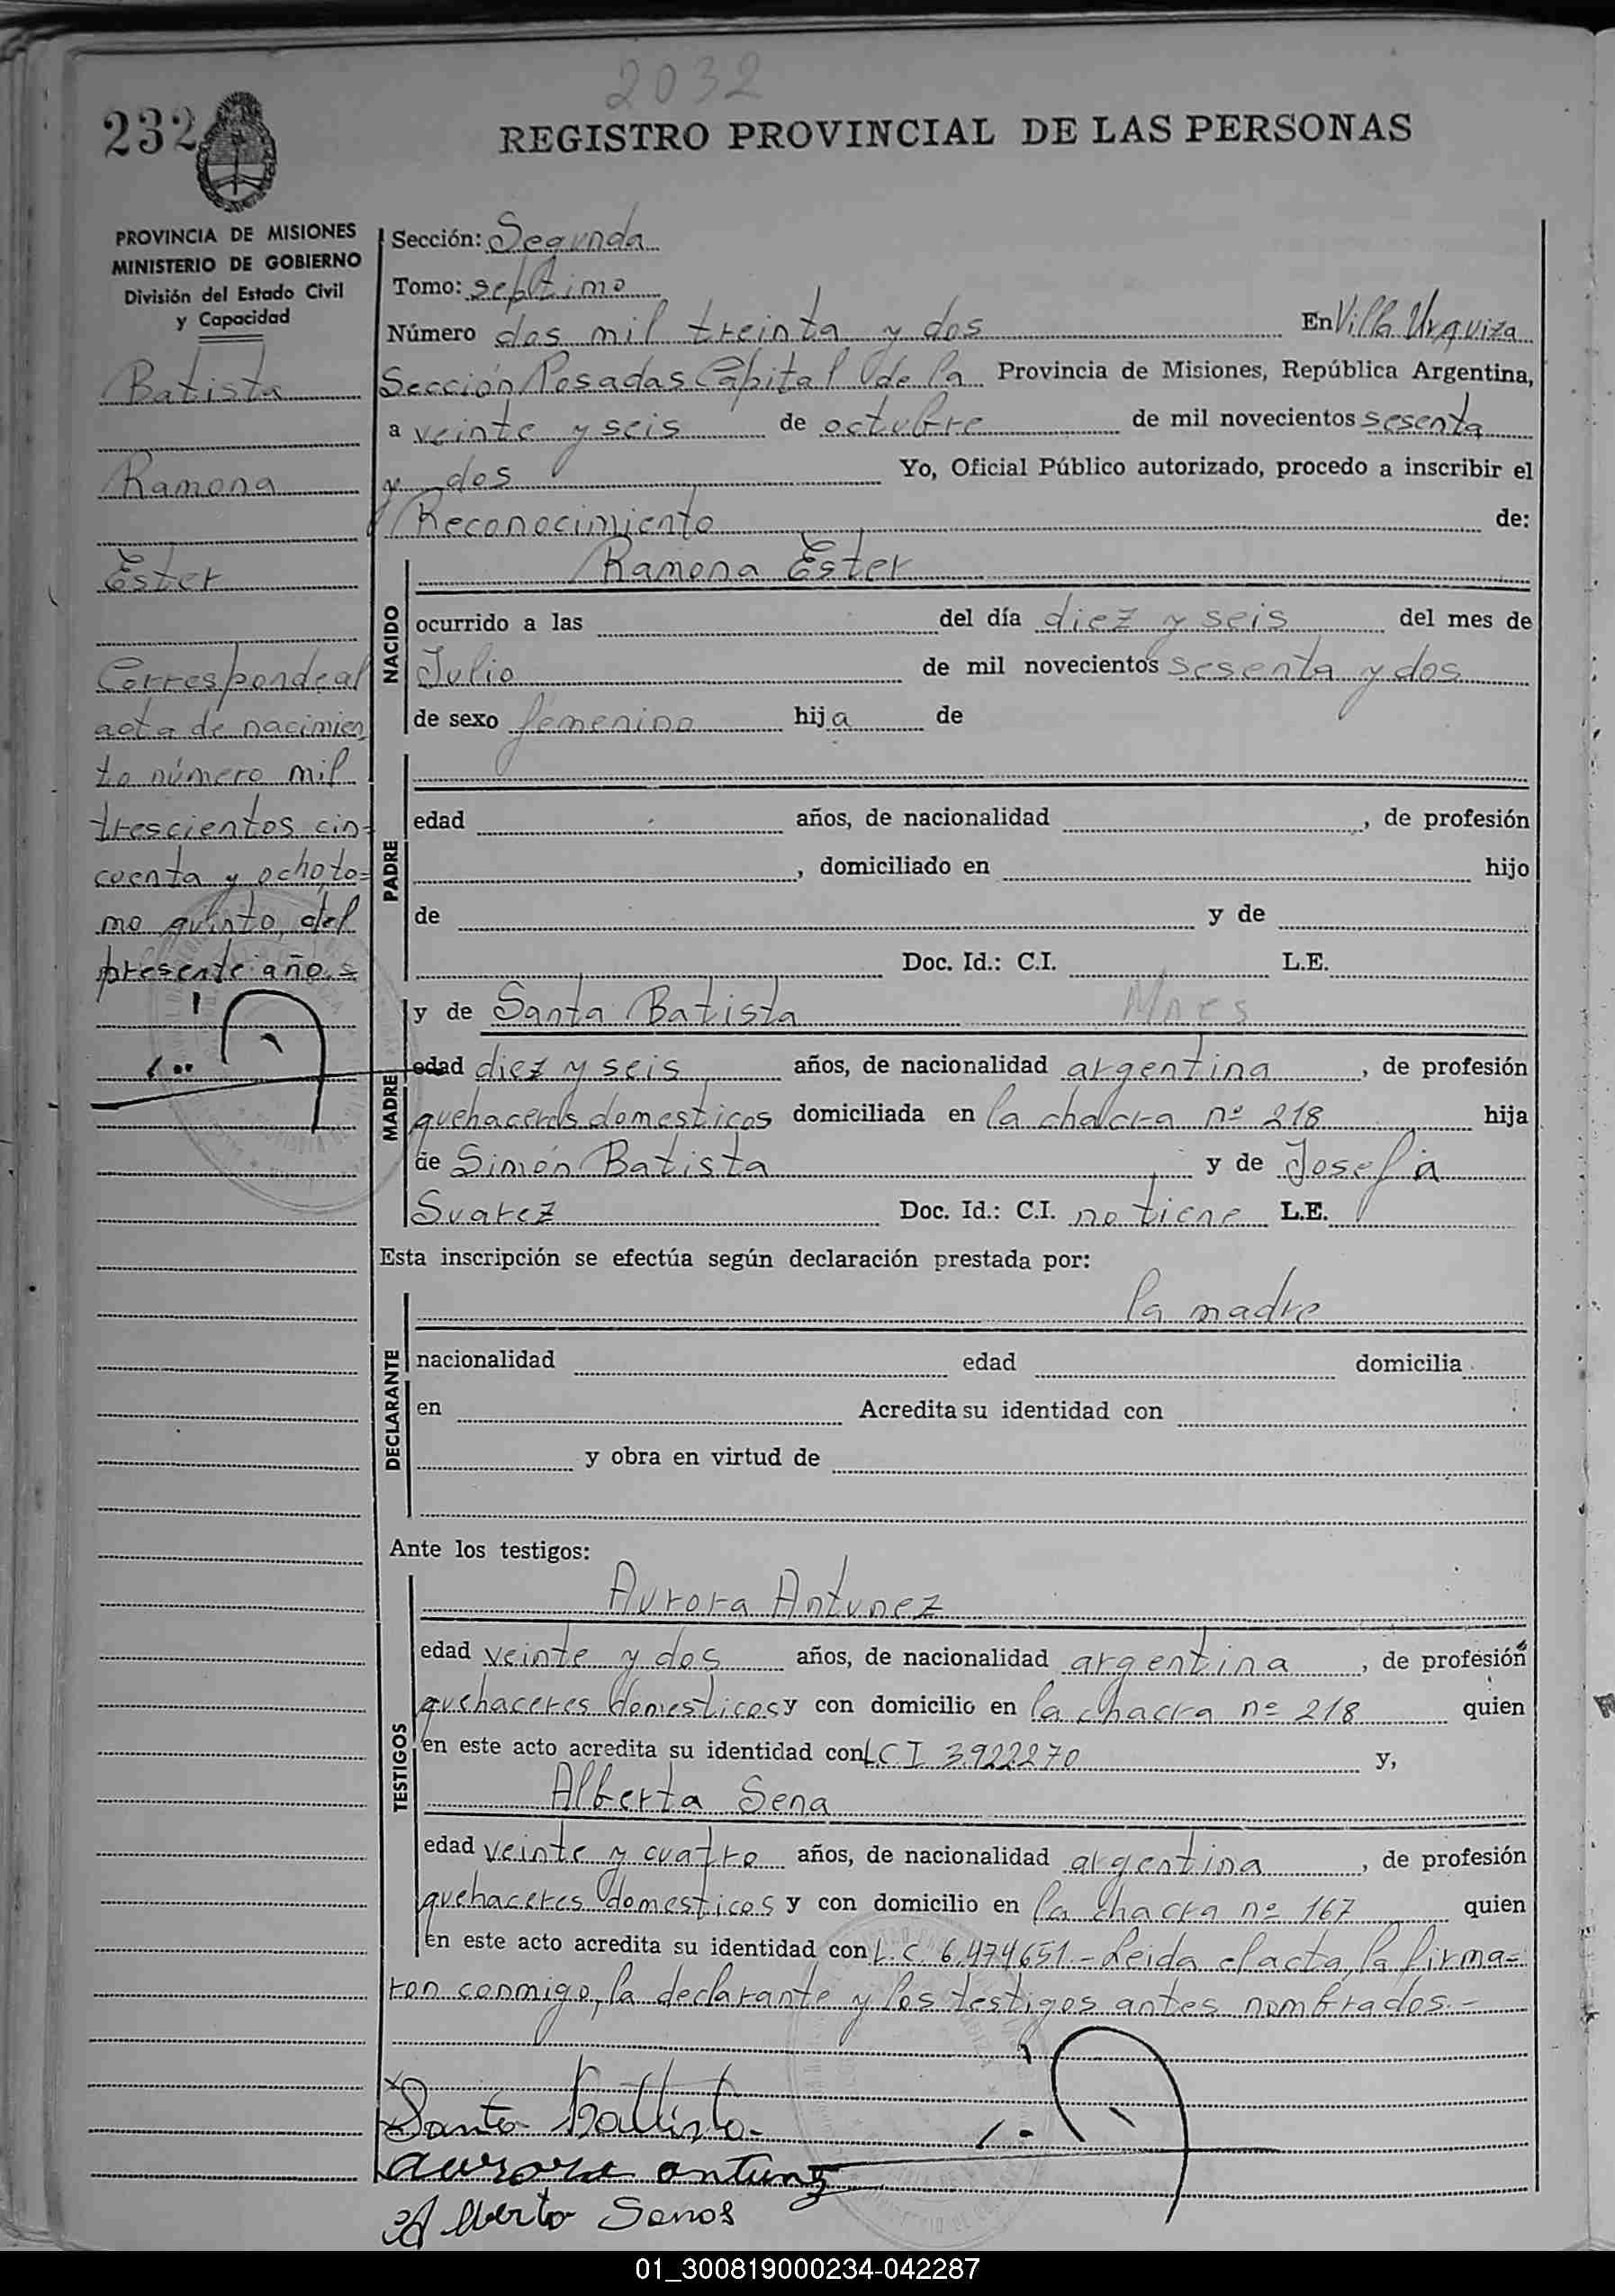 2032
232
REGISTRO PROVINCIAL DE LAS PERSONAS
PROVINCIA DE MISIONES
MINISTERIO DE GOBIERNO
División del Estado Civil
y Capacidad
Batista
Ramona
Ester
Corresponde al
acta de nacimien
to número mil
trescientos cin=
cuenta y ocho, to=
mo quinto, del
presente año.=
Sección: Segunda
Tomo: septimo
Número dos mil treinta y dos En Villa Urquiza
Sección Posadas Capital de la Provincia de Misiones, República Argentina,
a veinte y seis de octubre de mil novecientos sesenta
y dos Yo, Oficial Público autorizado, procedo a inscribir el
Reconocimiento de:
NACIDO
Ramona Ester
ocurrido a las del día diez y seis del mes de
Julio de mil novecientos sesenta y dos
de sexo femenino hija de
PADRE
edad años, de nacionalidad , de profesión
, domiciliado en hijo
de y de
Doc. Id.: C.I. L.E.
MADRE
y de Santa Batista
edad diez y seis años, de nacionalidad argentina , de profesión
quehaceres domesticos domiciliada en la chacra nº 218 hija
de Simón Batista y de Josefa
Suarez Doc. Id.: C.I. no tiene L.E.
Esta inscripción se efectúa según declaración prestada por:
DECLARANTE
la madre
nacionalidad edad domicilia
en Acredita su identidad con
y obra en virtud de
Ante los testigos:
TESTIGOS
Aurora Antunez
edad veinte y dos años, de nacionalidad argentina , de profesión
quehaceres domesticos y con domicilio en la chacra nº 218 quien
en este acto acredita su identidad con L C I 3.922270 y,
Alberta Sena
edad veinte y cuatro años, de nacionalidad argentina , de profesión
quehaceres domesticos y con domicilio en la chacra nº 167 quien
en este acto acredita su identidad con L.C. 6.474651.- Leida el acta, la firma=
ron conmigo, la declarante y los testigos antes nombrados.-
Santa Battista
aurora antunez
Alberto Senos
01_300819000234-042287